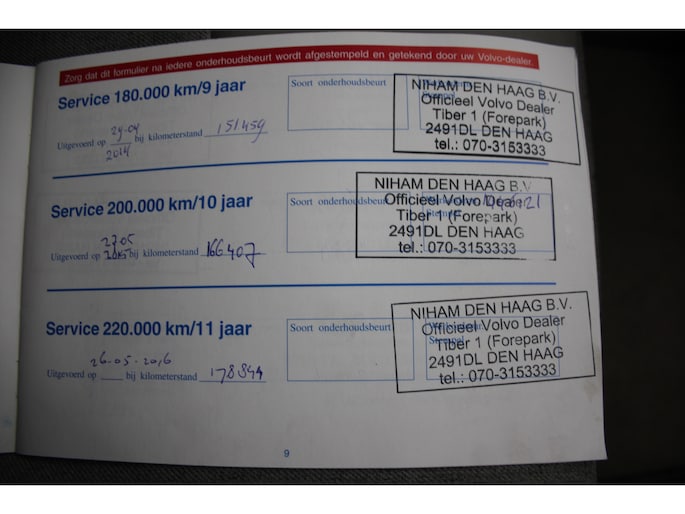 Zorg dat dit formulier na iedere onderhoudsbeurt wordt afgestempeld en getekend door uw Volvo-dealer.
Service 180.000 km/9 jaar
Soort onderhoudsbeurt
NIHAM DEN HAAG B.V.
Officieel Volvo Dealer
Tiber 1 (Forepark)
2491DL DEN HAAG
tel.: 070-3153333
Uitgevoerd op 29-04 2014 bij kilometerstand 151459
Service 200.000 km/10 jaar
Soort onderhoudsbeurt
NIHAM DEN HAAG B.V.
Officieel Volvo Dealer
Tiber 1 (Forepark)
2491DL DEN HAAG
tel.: 070-3153333
Uitgevoerd op 2705 2015 bij kilometerstand 166407
Service 220.000 km/11 jaar
Soort onderhoudsbeurt
NIHAM DEN HAAG B.V.
Officieel Volvo Dealer
Tiber 1 (Forepark)
2491DL DEN HAAG
tel.: 070-3153333
26-05-2016
Uitgevoerd op bij kilometerstand 178944
9